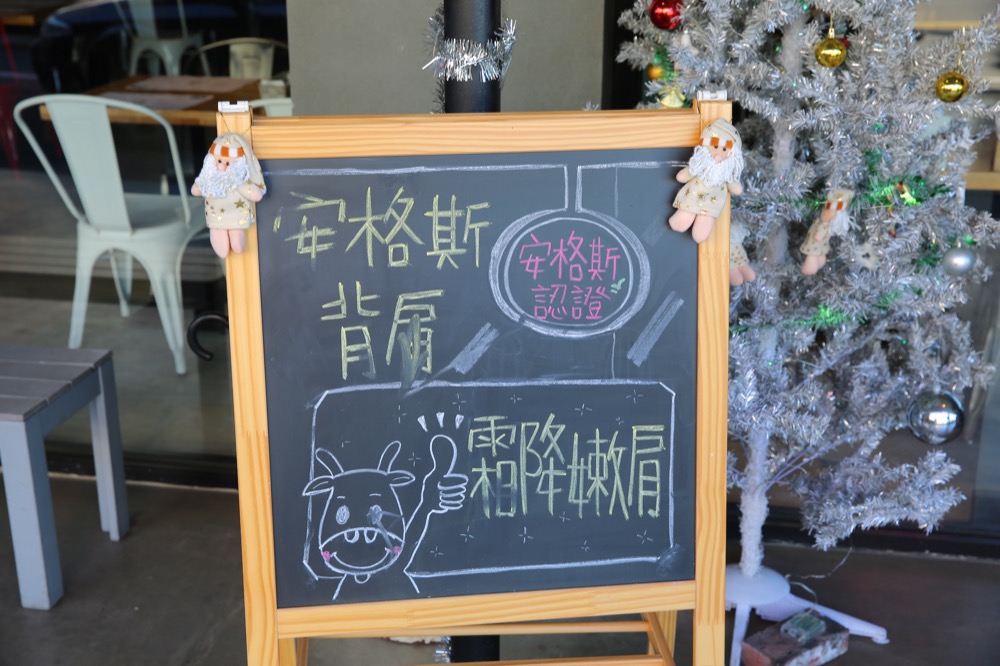 安格斯
背肩
安格斯
認證
霜降嫩肩